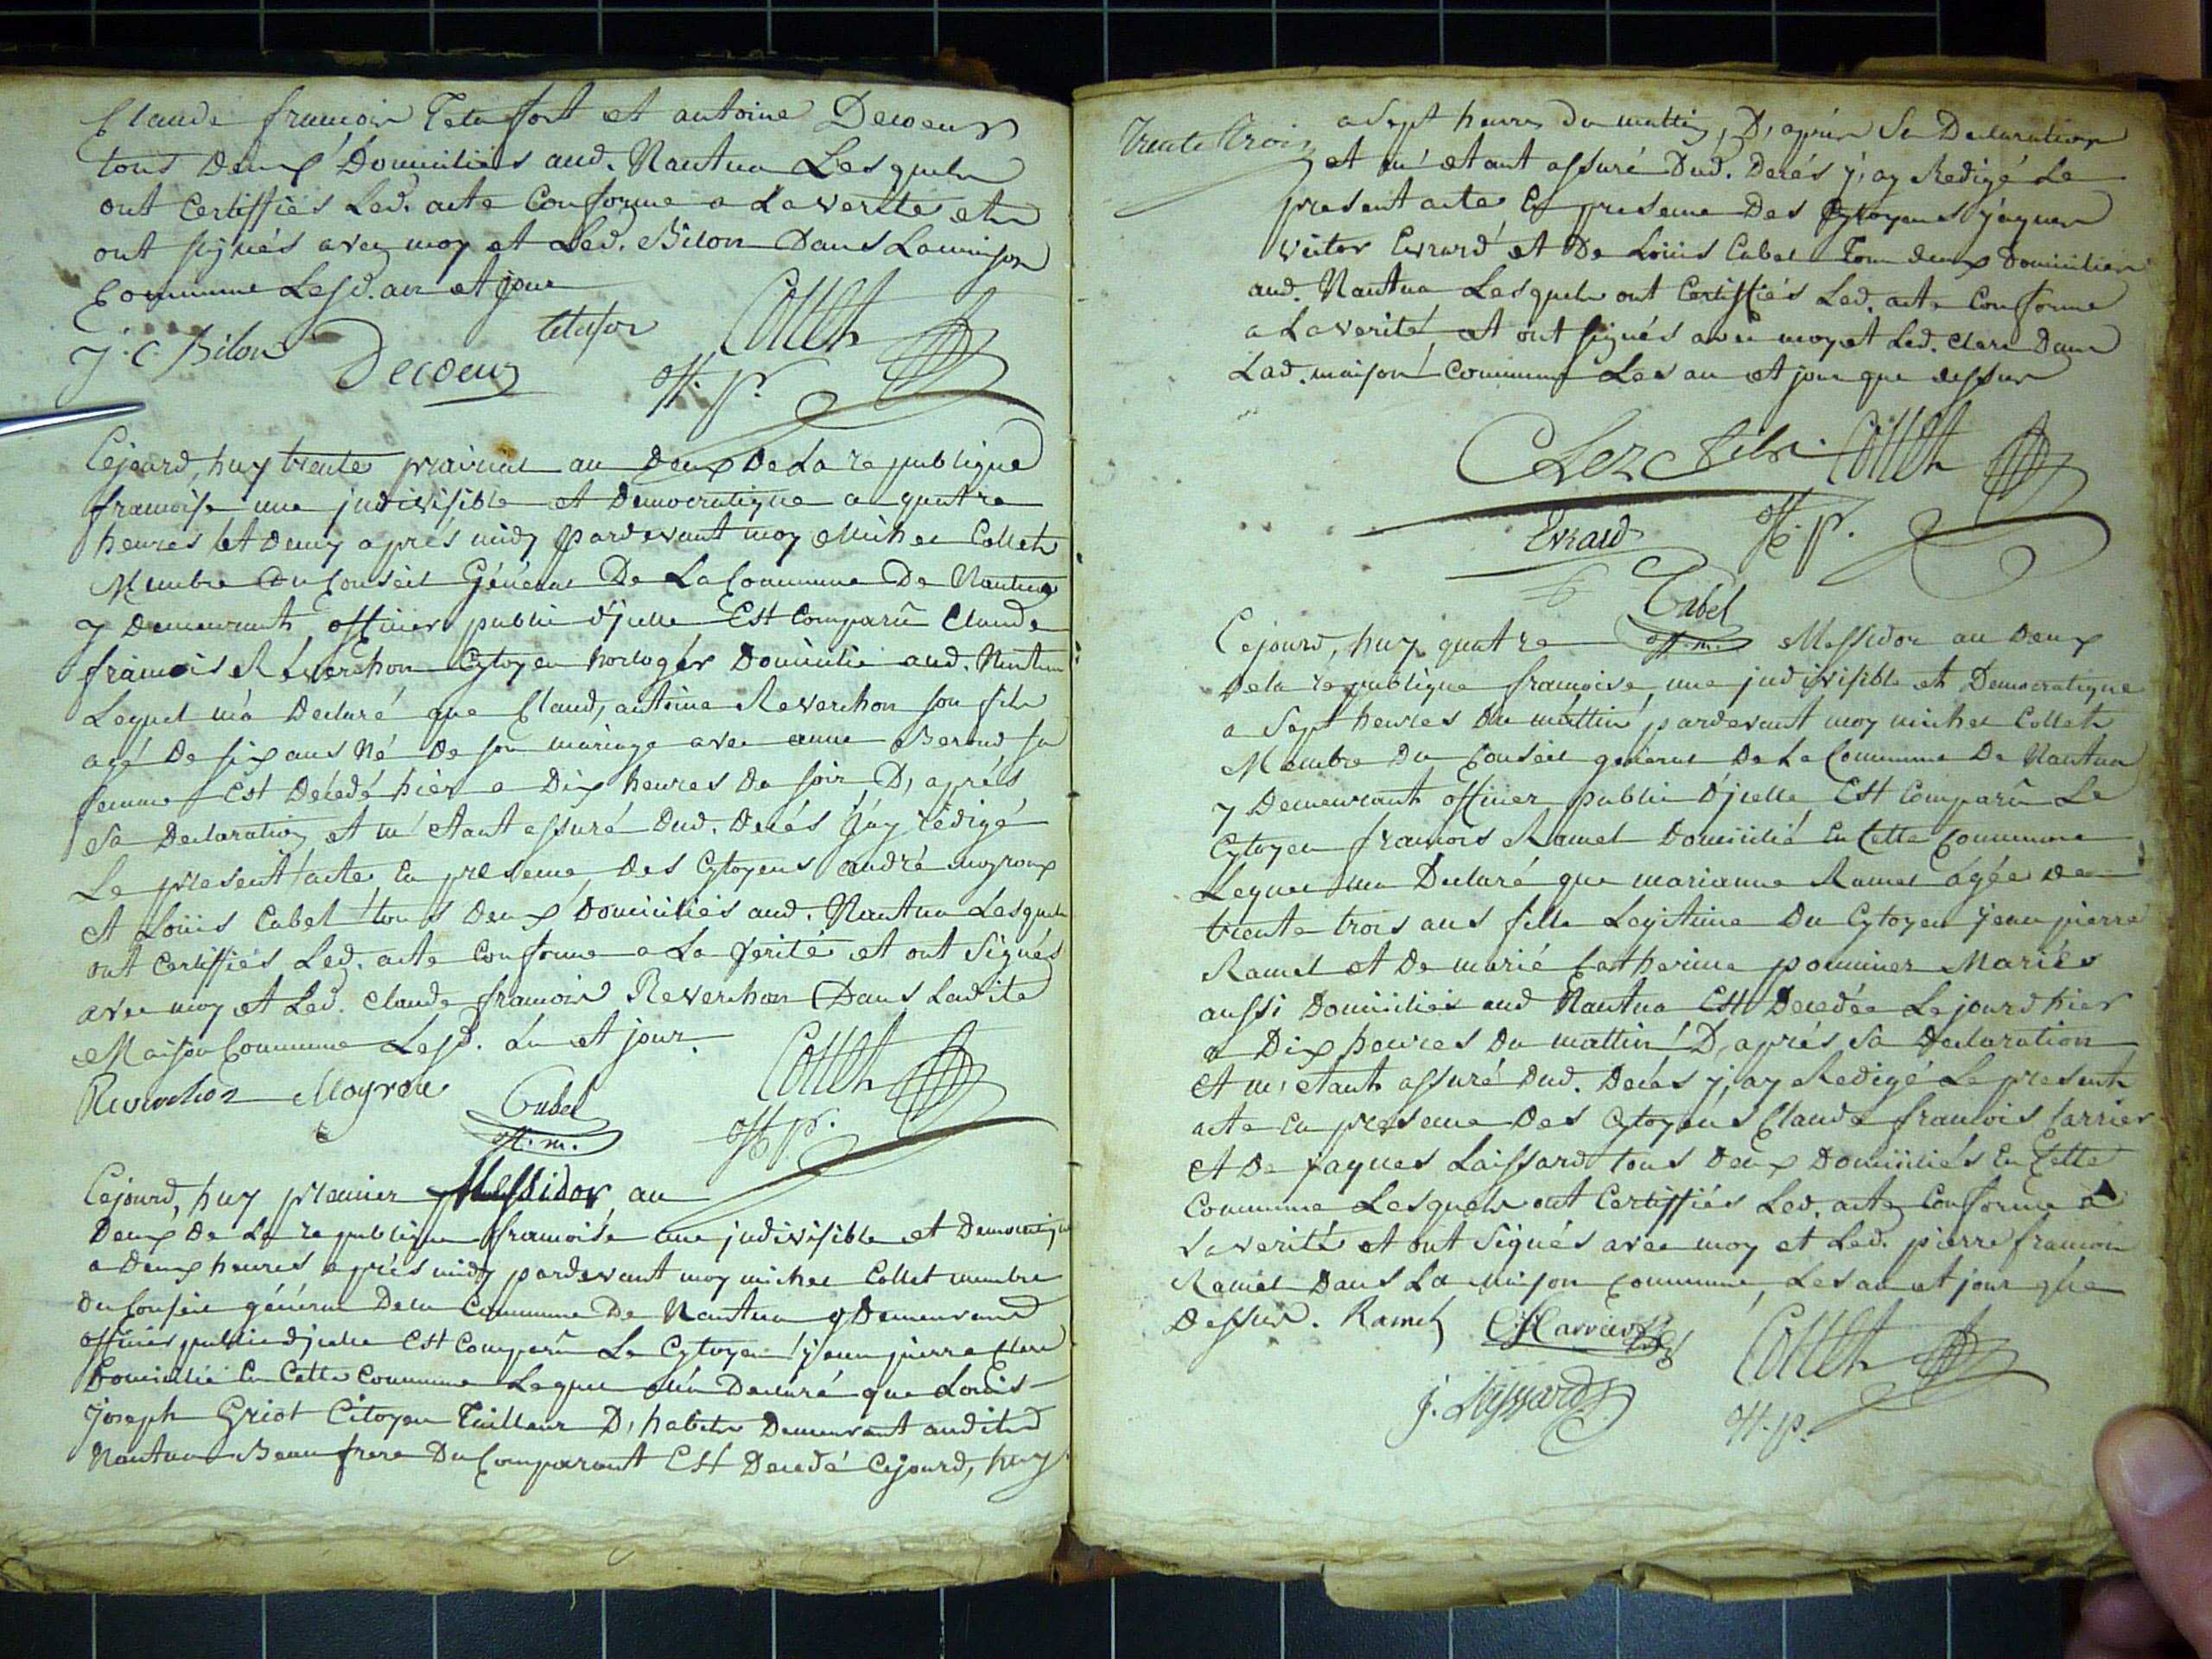 Claude francois Tetafort et antoine Decoeur
tous Deux Domiciliés aud. Nantua Lesquels
ont Certiffiés Led. acte Conforme a La verite et
ont signés avec moy et Led. Bilon Dans La maison
Commune Lesd. an et jour
J. C. Bilon Decoeur tetafor Collet
off. p.
Cejourd, huy trente prairial an Deux De La republique
francoise une judivisible et Democratique a quatre
heures et Demy aprés midy pardevant moy Michel Collet
Membre Du Conseil Général De La Commune De Nantua
y Demeurant officier public d'jcelle Est Comparû Claude
francois Reverchon Cytoyen horloger Domicilié aud. Nantua
Lequel m'a Declaré que Claud, antoine Reverchon son fils
agé De six ans Né De son mariage avec anne Beroud sa
femme Est Décedé hier a Dix heures Du soir D, aprés
sa Declaration et m'étant assuré Dud. Decés j'ay redigé
Le present acte En presence Des Cytoyens andré moyroux
et Loüis Cabel tous Deux Domiciliés aud. Nantua Lesquels
ont Certiffiés Led. acte Conforme a La verité et ont Signés
avec moy et Led. Claude francois Reverchon Dans Ladite
Maison Commune Lesd. an et jour.
Reverchon Moyrou Cabel Collet
off. m. off. p.
Cejourd, huy premier Messidor an
Deux De La republique francoise une judivisible et Democratique
a Deux heures aprés midy pardevant moy michel Collet membre
Du Conseil général Dela Commune De Nantua y Demeurant
officier public d'jcelle Est Comparû Le Cytoyen jean pierre Clerc
Domicilié En Cette Commune Lequel m'a Declaré que Louis
Joseph Griot Citoyen Tailleur D, habits Demeurant audit
Nantua Beau frere Du Comparant Est Decedé Cejourd, huy
Trente trois
a Sept heures du mattin, D, aprés Sa Declaration
et m'etant assuré Dud. Decés j'ay Redigé Le
present acte En presence Des Cytoyens jaques
victor Evrard et De Loüis Cabel Tous deux Domiciliés
aud. Nantua Lesquels ont Certiffiés Led. acte Conforme
a La verité et ont signés avec moy et Led. Clerc Dans
Lad. maison Commune Les an et jour que dessus
Clerc fils. Collet
Evrard off. p.
Cabel
off. m.
Cejourd, huy quatre Messidor an Deux
Dela republique francoise une judivisible et Democratique
a Sept heures Du mattin pardevant moy michel Collet
Membre Du Conseil general De La Commune De Nantua
y Demeurant officier public D'jcelle Est Comparû Le
Cytoyen francois Ramel Domicilié En Cette Commune
Lequel ma Declaré que marianne Ramel agée De
trente trois ans fille Legitime Du Cytoyen jean pierre
Ramel et De marié Catherine pommier Mariés
aussi Domiciliés aud Nantua Est Decedée Lejourd hier
a Dix heures Du mattin D, aprés Sa Declaration
et m, etant assuré Dud. Decés j'ay Redigé Le present
acte En presence Des Cytoyens Claude francois Carrier
et De jaques Laissard tous Deux Domiciliés En Cette
Commune Lesquels ont Certiffiés Led. acte Conforme a
La verité et ont Signés avec moy et Led. pierre francois
Ramel Dans La maison Commune, Les an et jour que
Dessus. Ramel C. f. Carrier Collet
J. Layssard off. p.